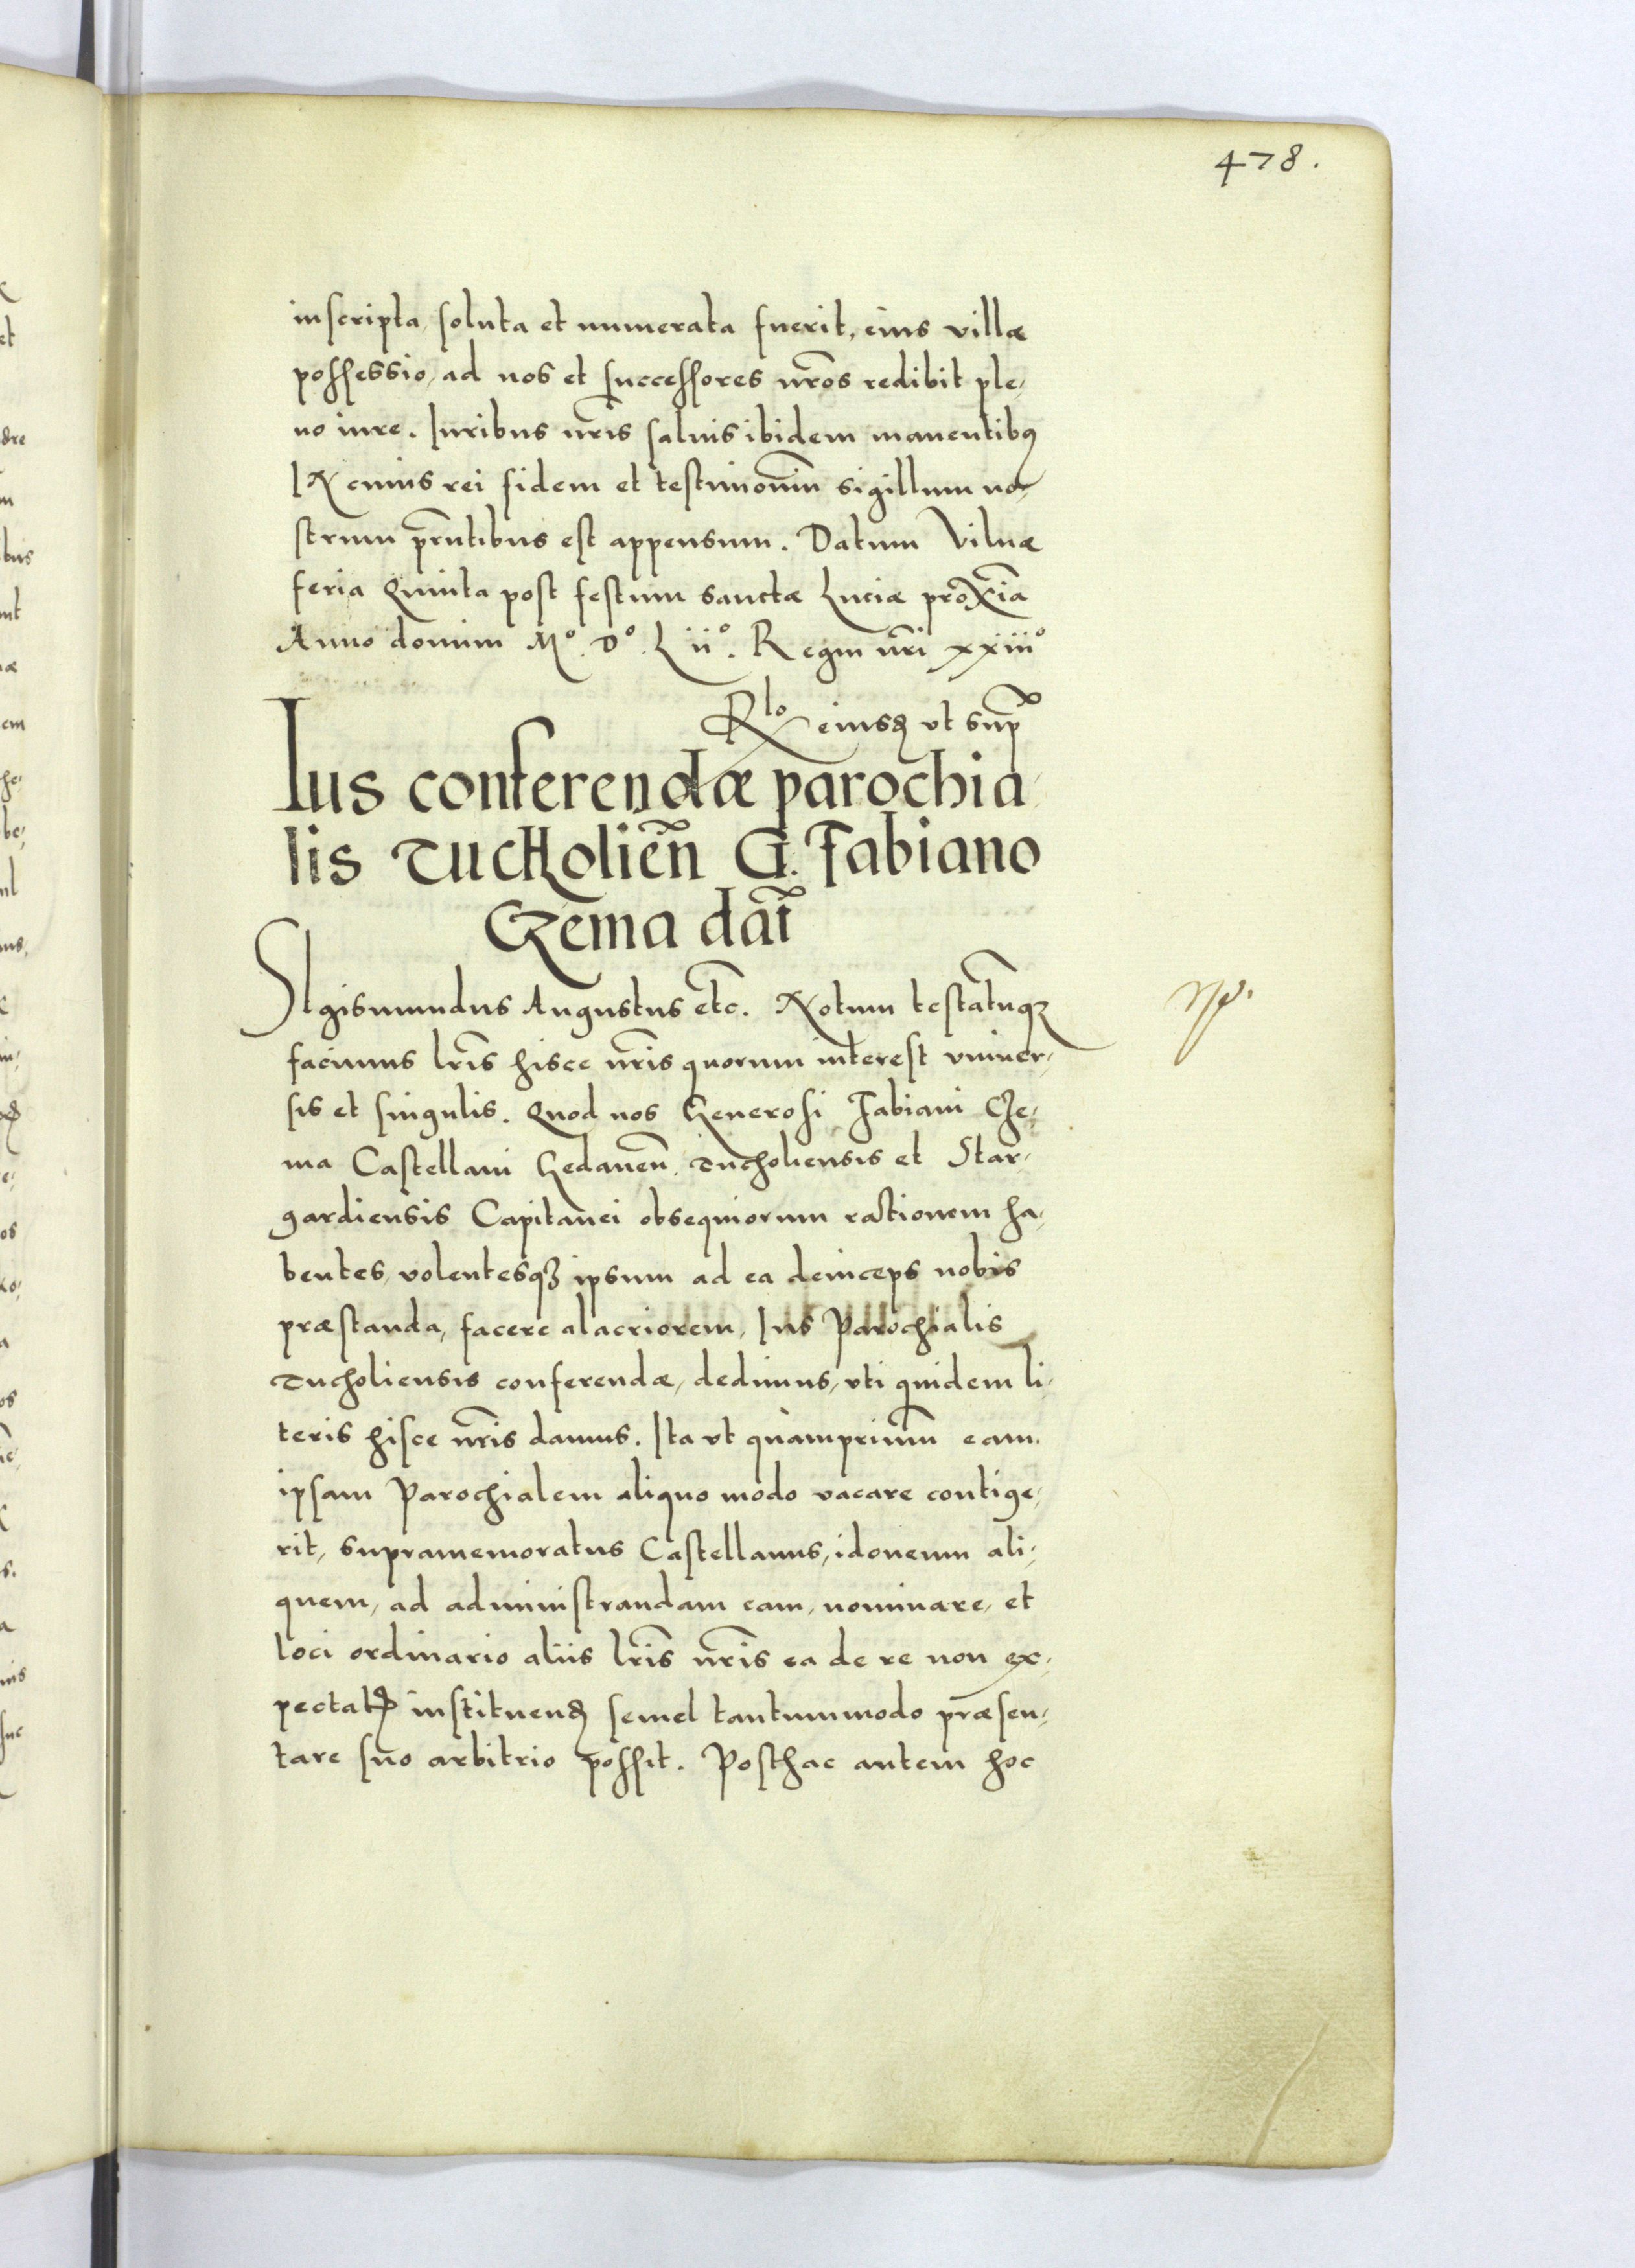 478.
inscripta, soluta et numerata fuerit, eius villæ
possessio, ad nos et successores nr̃os redibit ple,
no iure. Iuribus nr̃is saluis ibidem manentibꝫ
IN cuius rei fidem et testimoniũ sigillum no,
strum pr̃ntibus est appensum. Datum Vilnæ
feria Quinta post festum sanctæ Luciæ proxĩa
Anno domini Mº. Dº. Liiº. Regni nr̃i xxiiiº
Rlo eiusd ut sup
Ius conferendæ parochia,
lis Tucholieñ G. Fabiano
Czema dat̃
SIgismundus Augustus etc̃. Notum testatũqꝫ
facimus lr̃is hisce nr̃is quorum interest vniuer,
sis et singulis. Quod nos Generosi Fabiani Cze,
ma Castellani Gedaneñ. Tucholiensis et Star,
gardiensis Capitanei obsequiorum rationem ha,
bentes, volentesqꝫ ipsum ad ea deinceps nobis
præstanda, facere alacriorem, Ius Parochialis
Tucholiensis conferendæ, dedimus, vti quidem li,
teris hisce nr̃is damus. Ita vt quamprimũ eam
ipsam Parochialem aliquo modo vacare contige,
rit, supramemoratus Castellanus, idoneum ali,
quem, ad administrandam eam, nominare, et
loci ordinario aliis lr̃is nr̃is ea de re non ex,
pectat instituend semel tantummodo præsen,
tare suo arbitrio possit. Posthac autem hoc